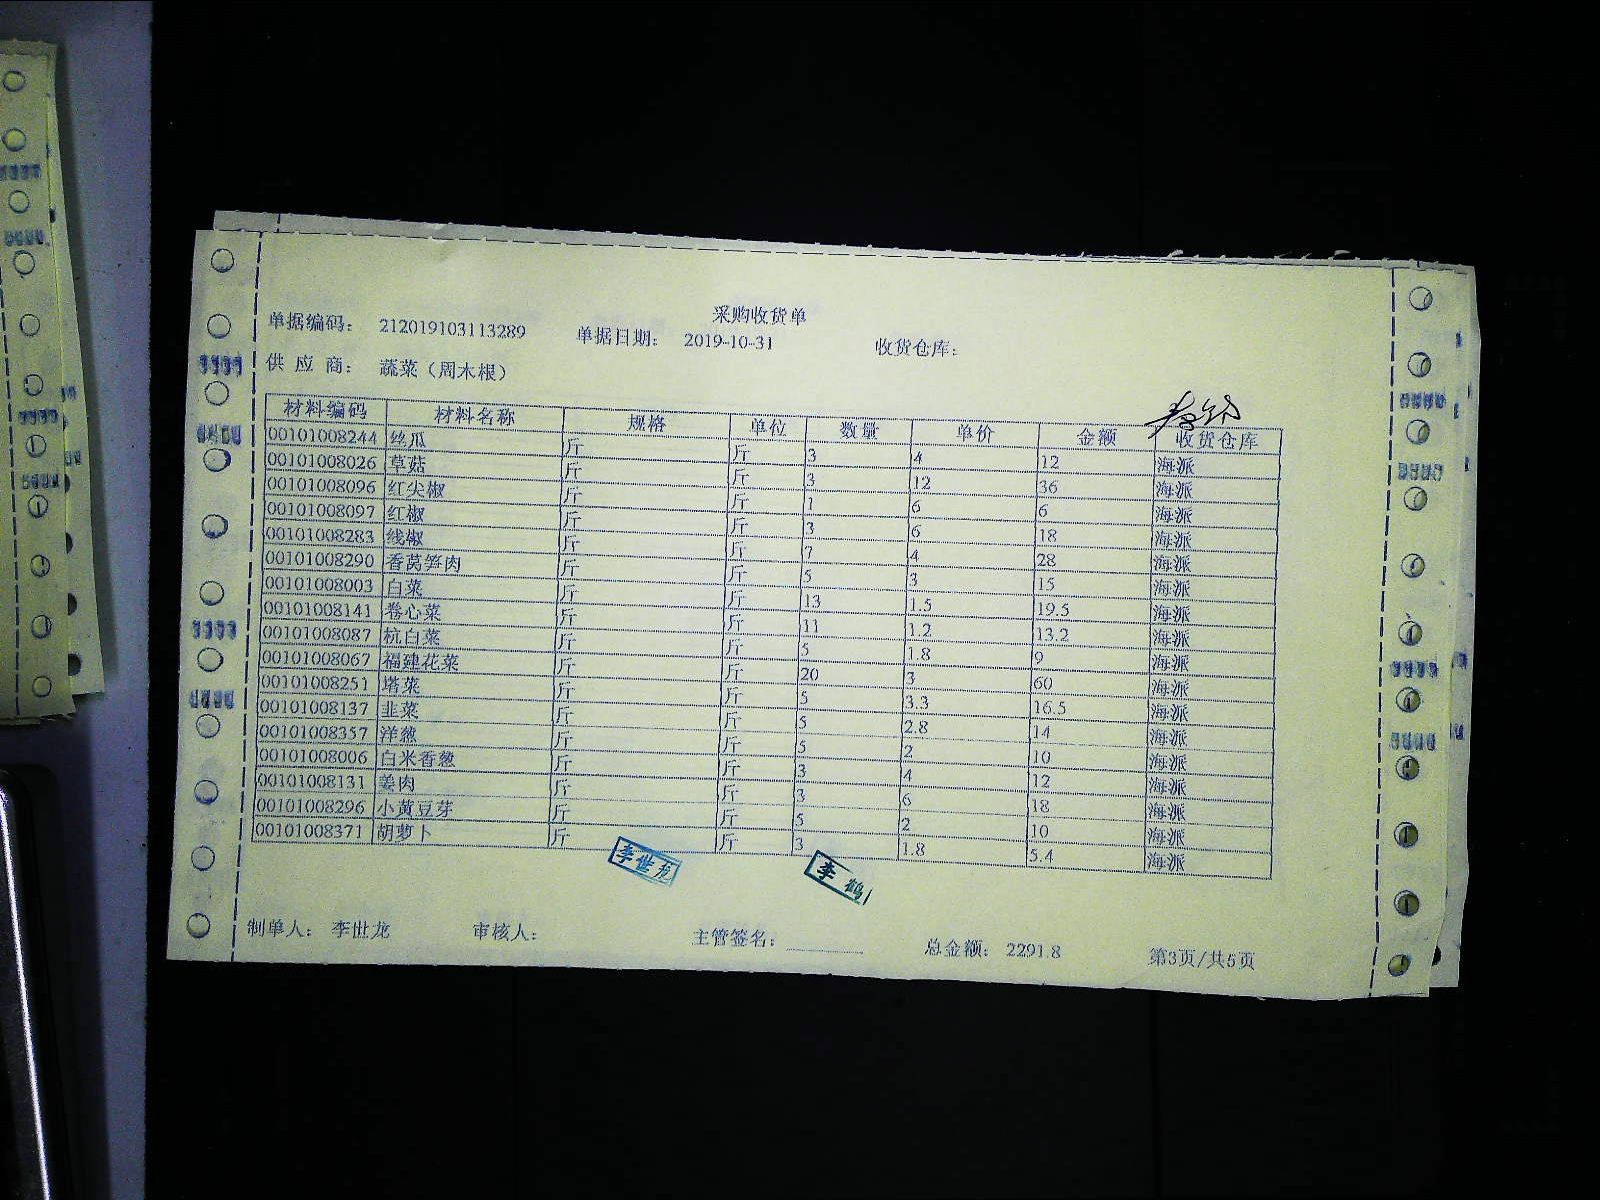 采购收货单
单据编码： 212019103113289 单据日期： 2019-10-31 收货仓库：
供 应 商： 蔬菜（周木根）
材料编码 材料名称 规格 单位 数量 单价 金额 收货仓库
00101008244 丝瓜 斤 斤 3 4 12 海派
00101008026 草菇 斤 斤 3 12 36 海派
00101008096 红尖椒 斤 斤 1 6 6 海派
00101008097 红椒 斤 斤 3 6 18 海派
00101008283 线椒 斤 斤 7 4 28 海派
00101008290 香莴笋肉 斤 斤 5 3 15 海派
00101008003 白菜 斤 斤 13 1.5 19.5 海派
00101008141 卷心菜 斤 斤 11 1.2 13.2 海派
00101008087 杭白菜 斤 斤 5 1.8 9 海派
00101008067 福建花菜 斤 斤 20 3 60 海派
00101008251 塔菜 斤 斤 5 3.3 16.5 海派
00101008137 韭菜 斤 斤 5 2.8 14 海派
00101008357 洋葱 斤 斤 5 2 10 海派
00101008006 白米香葱 斤 斤 3 4 12 海派
00101008131 姜肉 斤 斤 3 6 18 海派
00101008296 小黄豆芽 斤 斤 5 2 10 海派
00101008371 胡萝卜 斤 斤 3 1.8 5.4 海派
李世龙 李鹤
制单人： 李世龙 审核人： 主管签名： 总金额： 2291.8 第3页/共5页